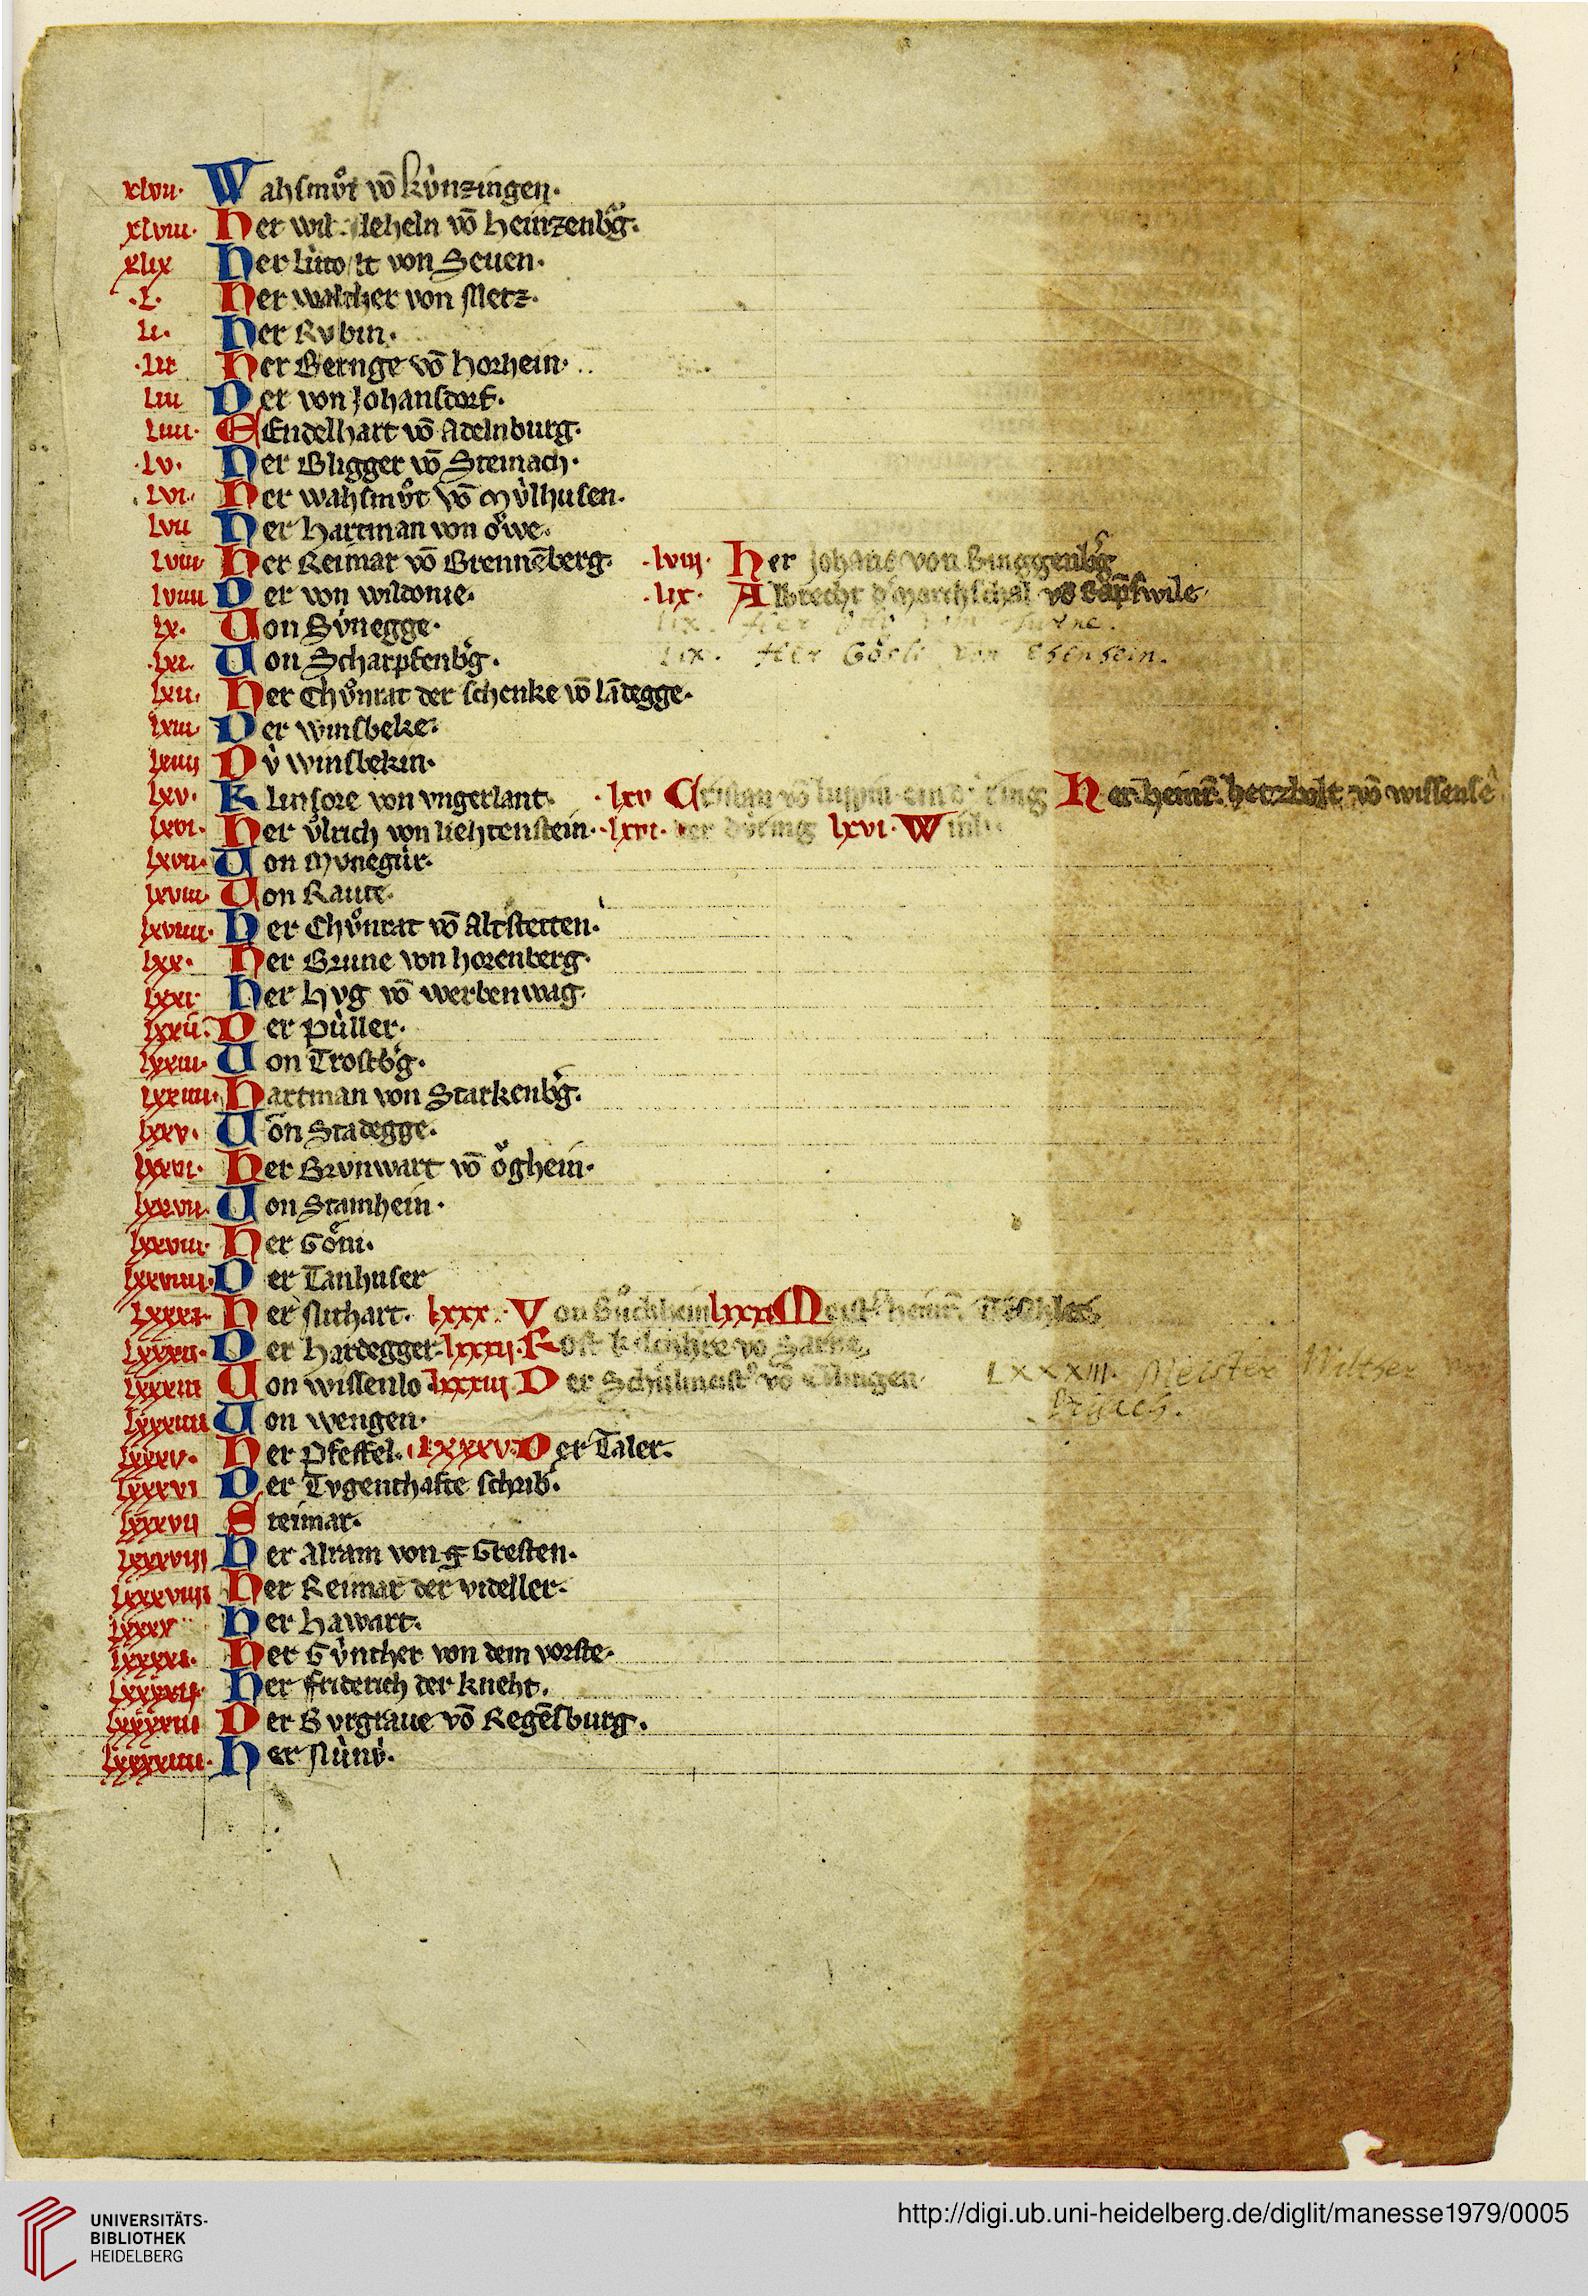 xlvii· Wahsmuͦt vō kv́nzingen·
xlviii· Her wil leheln vō Heinzenb'g·
xlix Her Lv́tolt von Seuen·
·L· Her walther von Metz·
Li· Her Rvbin·
·Lii Her Bernge vō Horhein·
Liii Der von Johansdorf·
Liiii· EEndelhart vō Adelnburg·
·Lv· Her Bligger vō Steinach·
·Lvi· Her wahsmuͦt vō Mv́lhusen·
Lvii Her Hartman von oͮwe·
Lviii· Her Reimar vō Brennēberg· ·lviij· Her Johans von Ringgenb'g
lviiii Der von wildonie· ·lix· Albrecht d' marchschal vō Raprswile·
lx· Von Sv́negge· lix. Her von turne.
·lxi· Von Scharpfenb'g· lix. Her Gösli von Ehenhein.
lxii· Her Chuͦnrat der schenke vō lādegge·
lxiii· Der winsbeke·
lxiiij Dv́ winsbekin·
lxv· Klinsore von vngerlant· ·lxv Cristan vō luppin ein d' ring Her heinr̄· hetzbolt vō wissense
lxvi· Her vͦlrich von liehtenstein· ·lxvi· der dv́ring lxvi· Winli·
lxvii· Von Mvnegiur·
lxviii· Von Raute·
lxviiii· Her Chuͦnrat vō Altstetten·
lxx· Her Brune von horenberg·
lxxi· Her Hvg vō werbenwag·
lxxii· Der pv́ller·
lxxiii· Von Trostb'g·
lxxiiii· Hartman von Starkenb'g·
lxxv· Von Stadegge·
lxxvi· Her Brvnwart vō oͮghein·
lxxvii· Von Stamhein·
lxxviii· Her Goͤni·
lxxviiii· Der Tanhuser
Lxxxi· Her Nithart· lxxx·· Von Buͦchhein lxxxi Meist' heinr̄· Teschler
lxxxii· Der Hardegger· lxxxij· Rost kilchhre vō Sarne
lxxxiii Von wissenlo lxxxiij Der Schulmeist' vō Eslingen· LXXXIII. Meister Walther von
Prisach.
lxxxiiii Von wengen·
lxxxv· Her Pfeffel· LXXXV· Der Taler·
lxxxvi Der Tvgenthafte schrib'·
lxxxvij Steimar·
lxxxviij Her Alram von g Gresten·
lxxxviiij Her Reimar der videller·
lxxxx Her Hawart·
lxxxxi· Her Gv́nther von dem vorste·
lxxxxii· Her friderich der kneht·
lxxxxiii Der Burgraue vō Regēsburg·
lxxxxiiii· Her Niuniv́·
UNIVERSITÄTS-
BIBLIOTHEK
HEIDELBERG
http://digi.ub.uni-heidelberg.de/diglit/manesse1979/0005